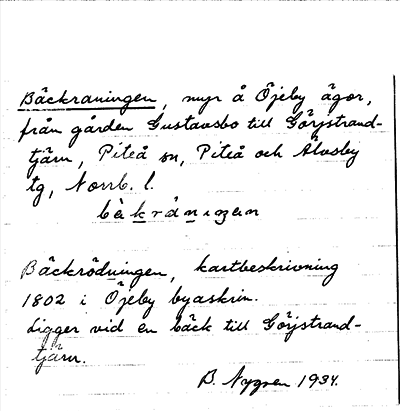 Bäckraningen, myr å Öjeby ägor,
från gården Gustavsbo till Görjstrand-
tjärn, Piteå sn, Piteå och Älvsby
tg, Norrb. l.
Bäckrödningen, kartbeskrivning
1802 i Öjeby byaskrin.
Ligger vid en bäck till Görjstrand-
tjärn.
B. Nygren 1934.